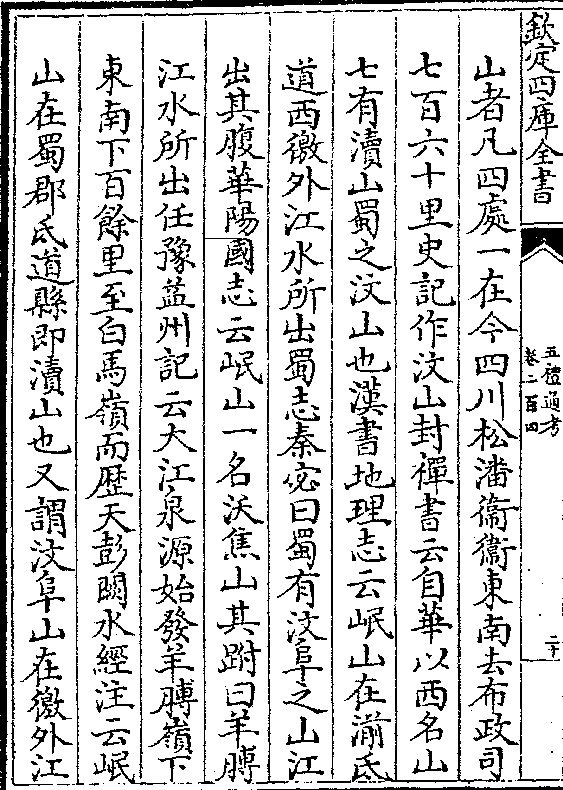 欽定四庫全書
五禮通考
卷二百四
二十
山者凡四處一在今四川松潘衞衞東南去布政司
七百六十里史記作汶山封禪書云自華以西名山
七有瀆山蜀之汶山也漢書地理志云岷山在湔氐
道西徼外江水所出蜀志秦宓曰蜀有汶阜之山江
出其腹華陽國志云岷山一名沃焦山其跗曰羊膊
江水所出任豫益州記云大江泉源始發羊膊嶺下
東南下百餘里至白馬嶺而歴天彭闕水經注云岷
山在蜀郡氐道縣即瀆山也又謂汶阜山在徼外江